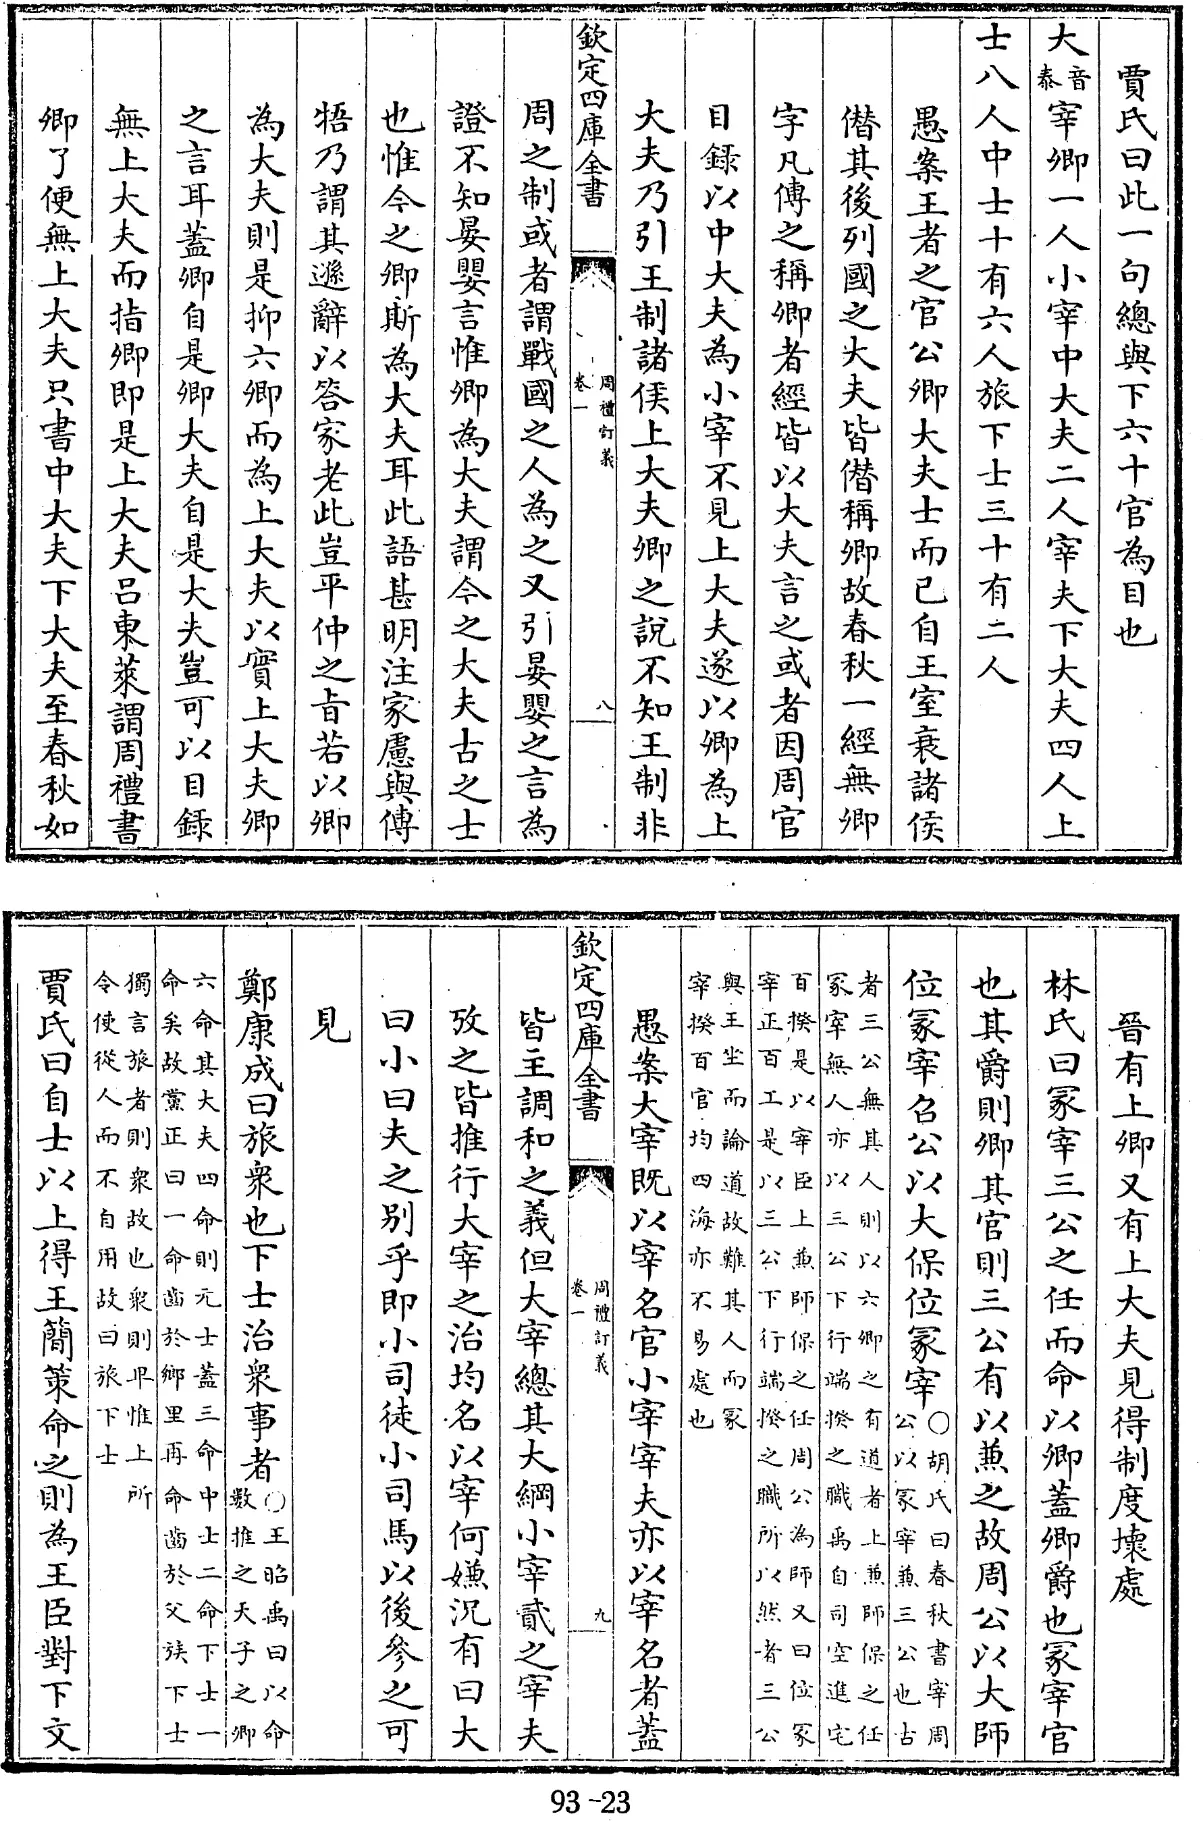 賈氏曰此一句總與下六十官為目也
大音泰宰卿一人小宰中大夫二人宰夫下大夫四人上
士八人中士十有六人旅下士三十有二人
愚案王者之官公卿大夫士而已自王室衰諸侯
僭其後列國之大夫皆僭稱卿故春秋一經無卿
字凡傳之稱卿者經皆以大夫言之或者因周官
目錄以中大夫為小宰不見上大夫遂以卿為上
大夫乃引王制諸侯上大夫卿之說不知王制非
欽定四庫全書
周禮訂義
卷一
八
周之制或者謂戰國之人為之又引晏嬰之言為
證不知晏嬰言惟卿為大夫謂今之大夫古之士
也惟今之卿斯為大夫耳此語甚明注家慮與傳
牾乃謂其遜辭以答家老此豈平仲之旨若以卿
為大夫則是抑六卿而為上大夫以實上大夫卿
之言耳蓋卿自是卿大夫自是大夫豈可以目錄
無上大夫而指卿即是上大夫呂東萊謂周禮書
卿了便無上大夫只書中大夫下大夫至春秋如
晉有上卿又有上大夫見得制度壞處
林氏曰冢宰三公之任而命以卿蓋卿爵也冢宰官
也其爵則卿其官則三公有以兼之故周公以大師
位冢宰召公以大保位冢宰
○胡氏曰春秋書宰周
公以冢宰兼三公也古
者三公無其人則以六卿之有道者上兼師保之任
冢宰無人亦以三公下行端揆之職禹自司空進宅
百揆是以宰臣上兼師保之任周公為師又曰位冢
宰正百工是以三公下行端揆之職所以然者三公
與王坐而論道故難其人而冢
宰揆百官均四海亦不易處也
愚案大宰既以宰名官小宰宰夫亦以宰名者蓋
欽定四庫全書
周禮訂義
卷一
九
皆主調和之義但大宰總其大綱小宰貳之宰夫
攷之皆推行大宰之治均名以宰何嫌況有曰大
曰小曰夫之別乎即小司徒小司馬以後參之可
見
鄭康成曰旅衆也下士治衆事者
○王昭禹曰以命
數推之天子之卿
六命其大夫四命則元士蓋三命中士二命下士一
命矣故黨正曰一命齒於鄉里再命齒於父族下士
獨言旅者則衆故也衆則卑惟上所
令使從人而不自用故曰旅下士
賈氏曰自士以上得王簡策命之則為王臣對下文
93-23